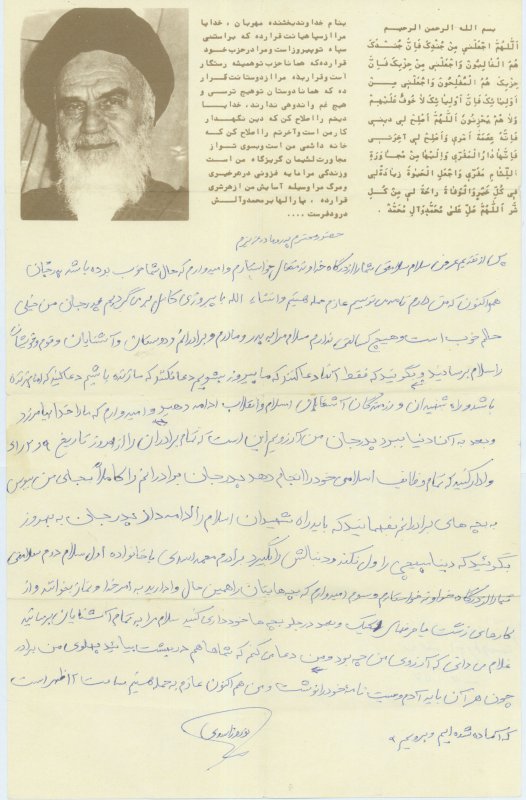 بسم الله الرحمن الرحیم
اَللّهُمَّ اجْعَلْنی مِنْ جُنْدِکَ فَاِنَّ جُنْدَکَ
هُمُ الْغالِبُونَ وَاجْعَلْنی مِنْ حِزْبِکَ فَاِنَّ
حِزْبَکَ هُمُ الْمُفْلِحُونَ وَاجْعَلْنی مِـــنْ
اَوْلِیائِکَ فَاِنَّ اَوْلِیائَکَ لاخَوْفٌ عَلَیْهِــمْ
وَلا هُمْ یَحْزَنُونَ اَللّهُمَّ اَصْلِحْ لی دینــی
فَاِنَّهُ عِصْمَةُ اَمْری وَاَصْلِحْ لی آخِرَتــی
فَاِنَّها دارُ مَقَرّی وَاِلَیْها مِنْ مُجــاوَرَةِ
اللِّئامِ مَفَرّی وَاجْعَلِ الْحَیوةَ زِیادَةً لی
فی کُلِّ خَیْرٍ وَالْوَفاةَ راحَةً لی مِنْ کُــلِّ
شَرٍّ اَللّهُمَّ صَلِّ عَلی مُحَمَّدٍ وَآلِ مُحَمَّدٍ
بنام خداوندبخشنده مهربان ، خدایا
مرا ازسپاهیانت قرارده که براستی
سپاه توپیروزاست ومرا درحزب خود
قرارده که همانا حزب توهمیشه رستگار
است وقراربده مرا ازدوستانت قـرار
ده که همانادوستان توهیچ ترســی و
هیچ غم واندوهی ندارند، خدایـــا
دینم رااصلاح کن که دین نگهــدار
کارمن است وآخرتم رااصلاح کن کــه
خانه دائمی من است وبسوی شواز
مجاورت لئیمان گریزگاه من اسـت
وزندگی مرا مایه فزونی درهرخیری
ومرگ مراوسیله آسایش من ازهرشری
قرارده ، بارالها برمحمدوآلــش
درودفرست ....
حضور محترم پدر و مادر عزیزم
پس از تقدیم عرض سلام سلامتی شما را از درگاه خداوند متعال خواستارم و امیدوارم که حال شما خوب بوده باشد پدرجان
هم اکنون که من دارم نامه می نویسم عازم حمله هستیم و انشاء الله با پیروزی کامل بر می گردیم پدرجان من خیلی
حالم خوب است و هیچ کسالتی ندارم سلام مرا به پدر و مادرم و برادرانم و دوستان و آشنایان و قوم و خویشان
را سلام برسانید و بگوئید که فقط آنها دعا کنند که ما پیروز بشویم دعا نکنند که ما زنده باشیم دعا کنید که امام زنده
باشد و راه شهیدان و رزمندگان اسلام و انقلاب ادامه دهید و امیدوارم که ما را خدا بیامرزد
و بعد به آن دنیا ببرد پدرجان من آرزویم این است که تمام برادران را از امروز تاریخ
وادار کنید که تمام وظایف اسلامی خود را انجام دهد پدرجان برادرانم را کاملاً بجای من ببوس
به بچه های برادرانم بفهمانید که باید راه شهیدان اسلام را ادامه داد پدرجان به بهروز
بگوئید که را ول نکند و دنبالش را بگیرد برادرم محمد اسدی با خانواده اول سلام دوم سلامتی
شما را از درگاه خداوند خواستارم و سوم امیدوارم که بچه هایتان را همین حال وادارید به امر خدا و نماز بخوانند و از
کارهای زشت و بعد در جلو بچه ها خودداری کنید سلام مرا به تمام آشنایان برسانید
غلام می دانی که آرزوی من چه بود و من دعا می کنم که شما هم در بهشت بیائید پهلوی من برادر
چون هر آن باید آدم وصیت نامه خود را نوشت و من هم اکنون عازم به حمله هستیم ساعت ۱۲ ظهر است
که آماده شده ایم و برویم
نوروز اسدی